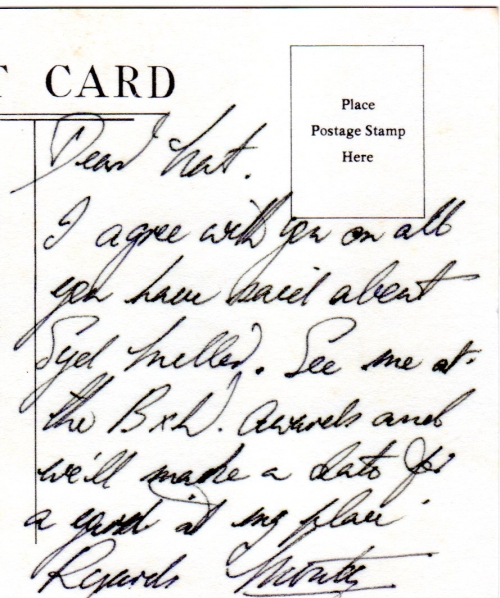 T CARD
Place
Postage Stamp
Here
Dear Nat.
I agree with you on all
you have said about
Syd Miller. See me at
the B&W. Awards and
we'll make a date for
a yarn at my place
Regards Monty